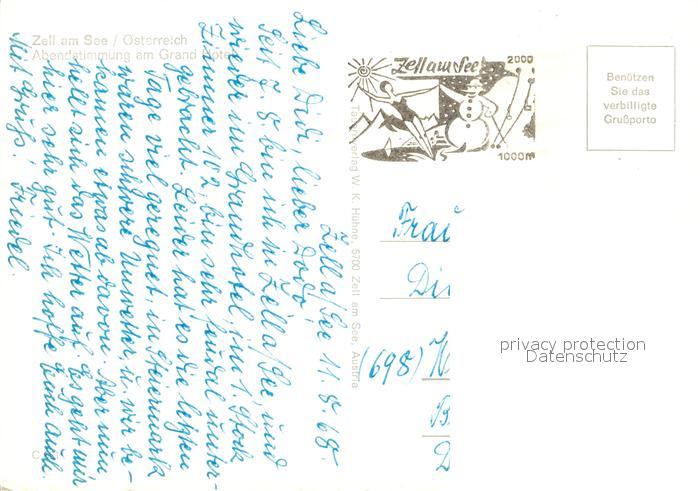 Zell am See / Österreich
Abendstimmung am Grand Hotel
Zell a/See 11. 8. 68.
Liebe Didi, lieber Dodo,
Seit 7. 8 bin ich in Zell a/See, und
wieder im Grandhotel, im 1. Stock
Zimmer 102, bin sehr feudal unter-
gebracht. Leider hat es die letzten
Tage viel geregnet, in Steiermark
waren schwere Unwetter, u. wir be-
kamen etwas ab davon. Aber nun
hellt sich das Wetter auf. Es geht mir
hier sehr gut. Ich hoffe Euch auch.
Mit Gruß! Friedel.
Verlag W. K. Hühne, 5700 Zell am See, Austria
Zell am See
2000
1000m
Benützen
Sie das
verbilligte
Grußporto
Frau
Di
(698) W
B
D
privacy protection
Datenschutz